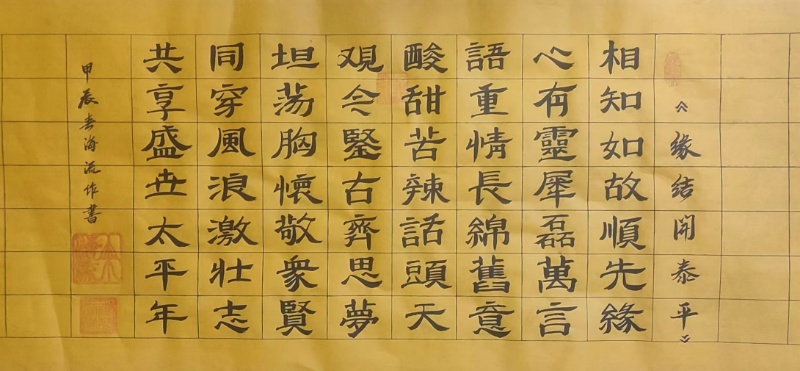 《缘结開泰平》
相知如故順先緣
心有靈犀磊萬言
語重情長綿舊意
酸甜苦辣話頭天
观今鋻古齊思夢
坦荡胸懷敬衆賢
同穿風浪激壯志
共享盛世太平年
甲辰春海流作書